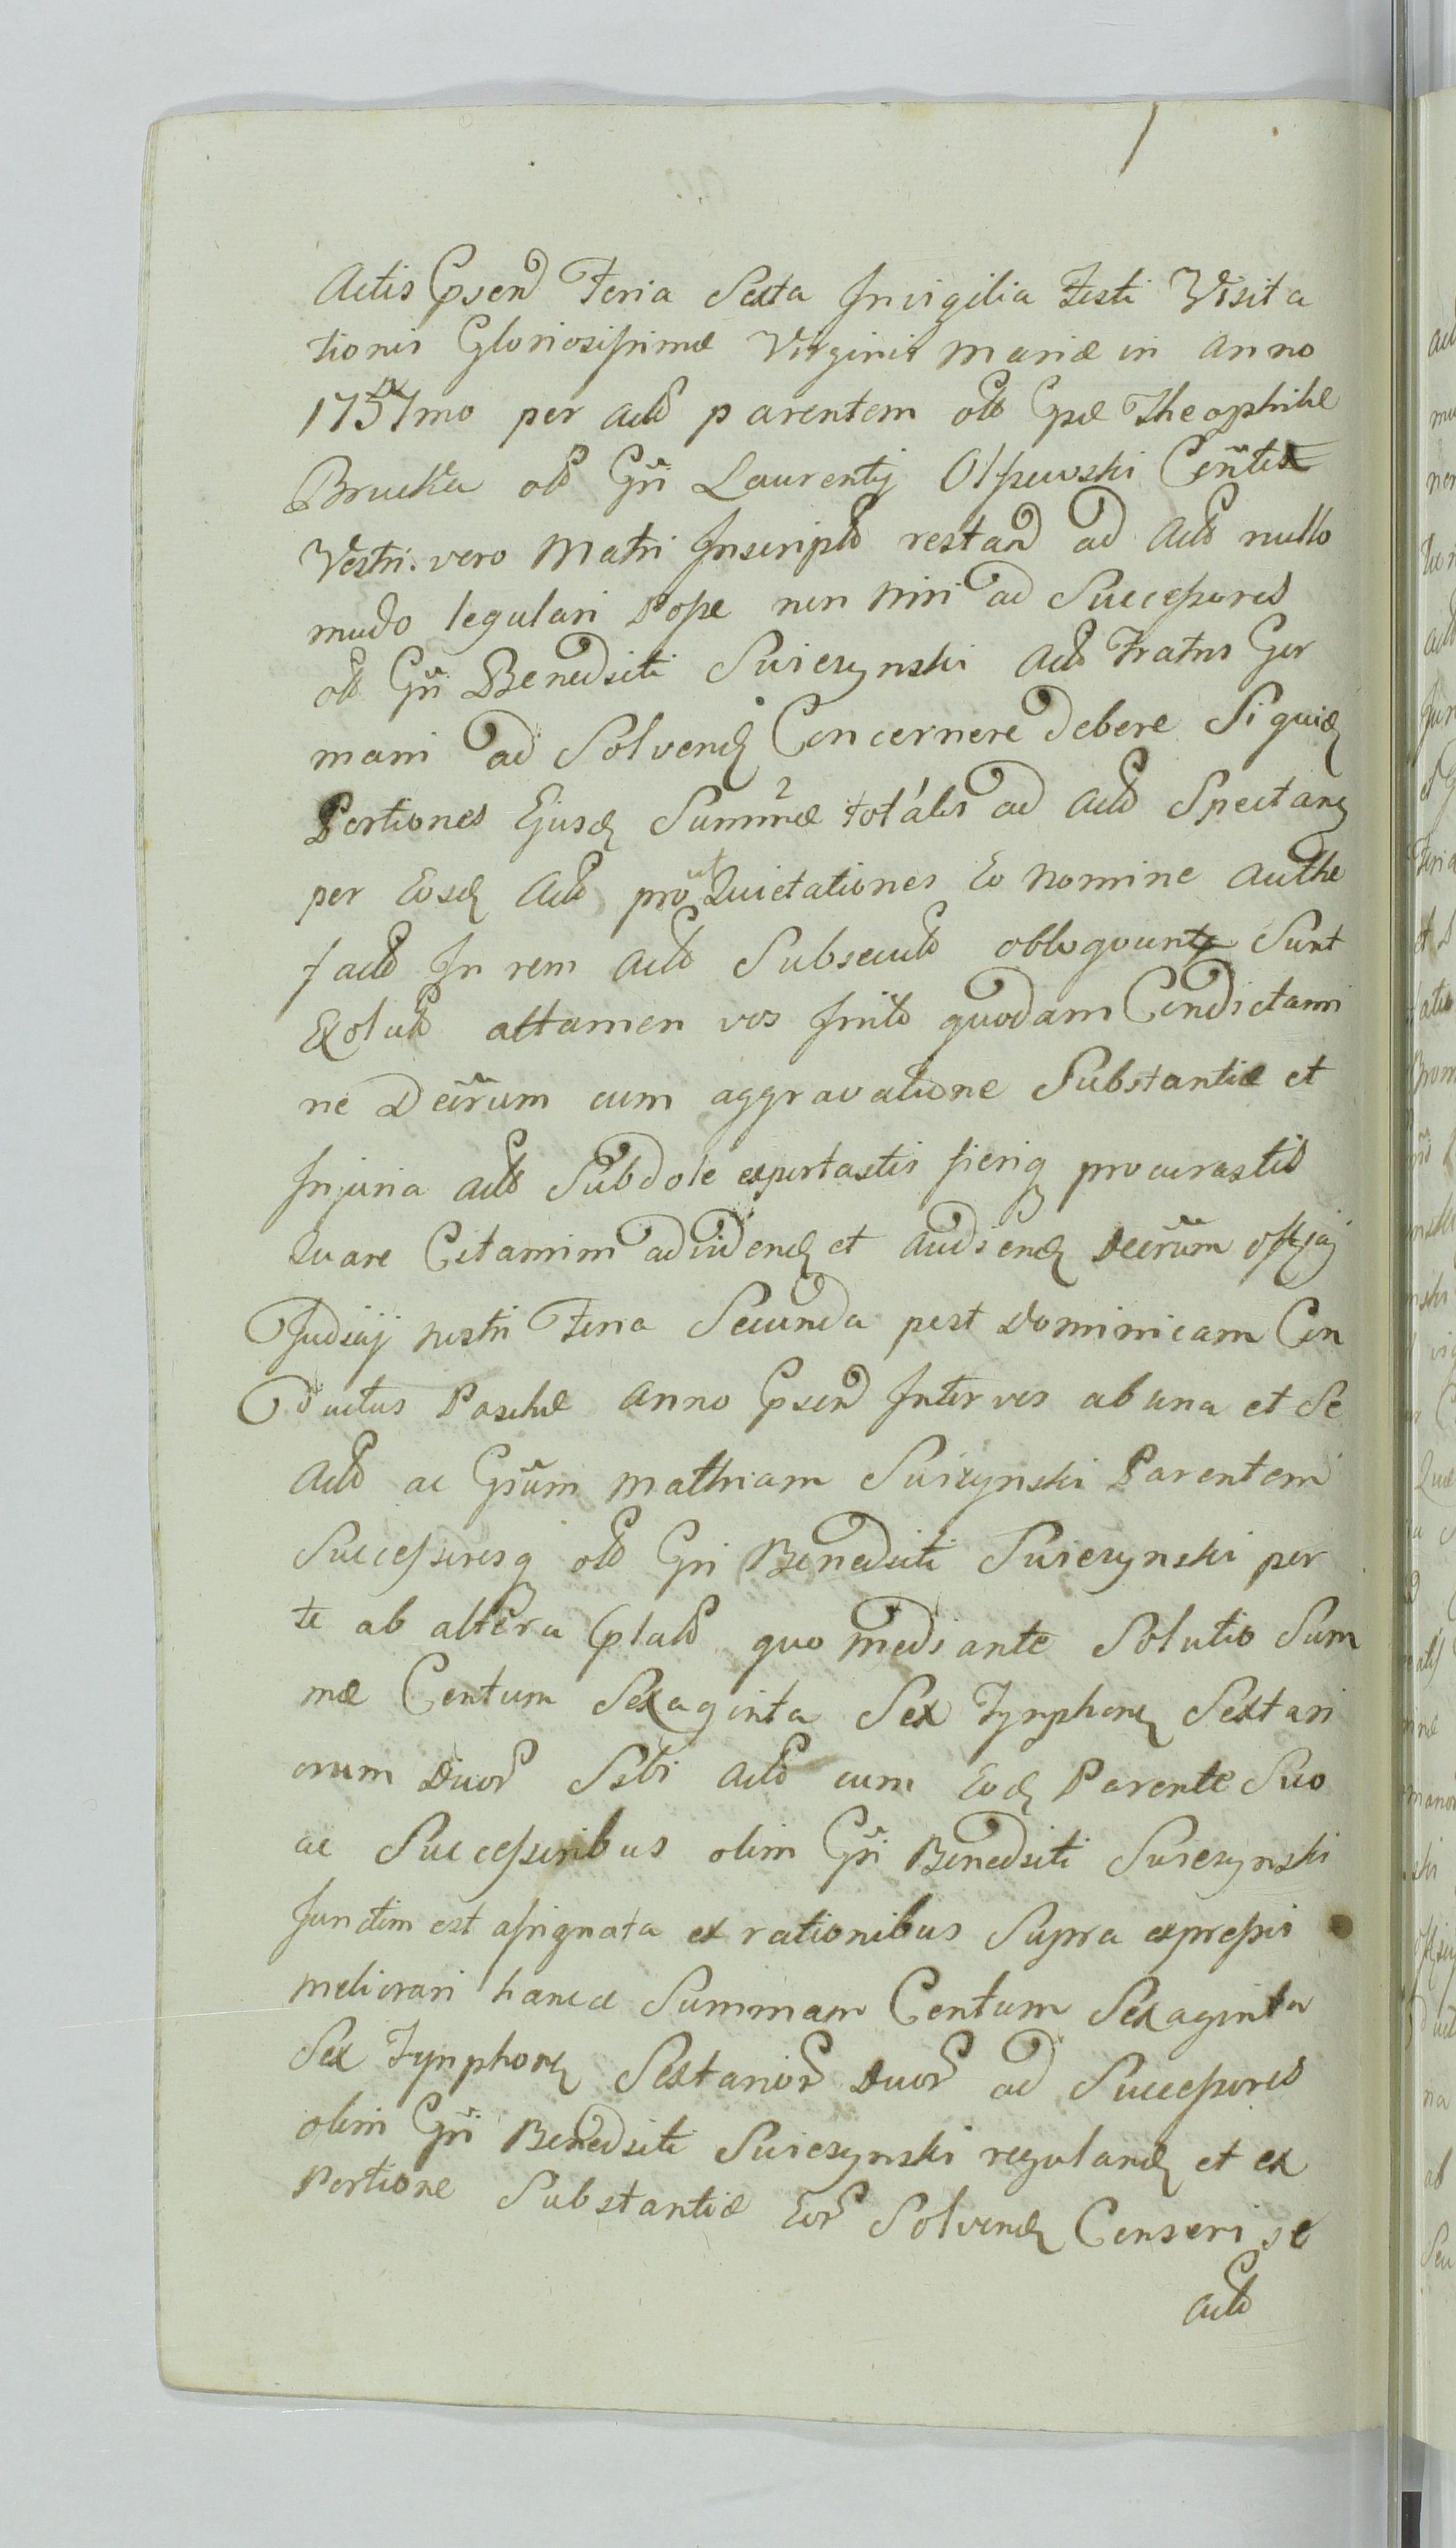 Actis Gpsend Feria Sexta Invigilia Festi Visita
tionis Gloriosissimæ Virginis Mariæ in Anno
1757mo per Actō parentem olō Gpæ Theophilæ
Brucka olō Gñi Laurentij Olszewski Coñtis
Vestri. vero Matri Inscriptō restand ad Actō nullo
modo regulari Posse non nisi ad Successores
olō Gñi Benedicti Swiezynski Actō Fratris Ger
mani ad Solvend Concernere debere Siquid
Portiones Ejusd Summæ totális ad Actō Spectan
per Eosd Actō prout Quietationes Eo Nomine Authe
factō In rem Actō Subsecutō obloquunt Sunt
Exolutō attamen vos Initō quodam Condictami
ne Decr̃um cum aggravatione Substantiæ et
Injuria Actō Subdole exportastis fieriq procurastis
Quare Citamini ad videnð et Audienð Decr̃um offij
Judicij nostri Feria Secunda post Dominicam Con
ductus Paschæ Anno Gpsend Inter vos ab una et Se
Actō ac Gñum Mathiam Swiezynski Parentem
Successoresq olō Gñi Benedicti Swiezynski par
te ab altera Gplatō quo mediante Solutio Sum
mæ Centum Sexaginta Sex Tynphon Sextari
orum Duor Sibi Actō cum Eod Parente Suo
ac Successoribus olim Gñi Benedicti Swiezynski
Junctim est assignata ex rationibus Supra expressis
meliorari hancce Summam Centum Sexaginta
Sex Tynphon Sextarior Duor ad Successores
olim Gñi Benedicti Swiezynski reguland et ex
Portione Substantiæ Eor Solvend Censeri se
Actō